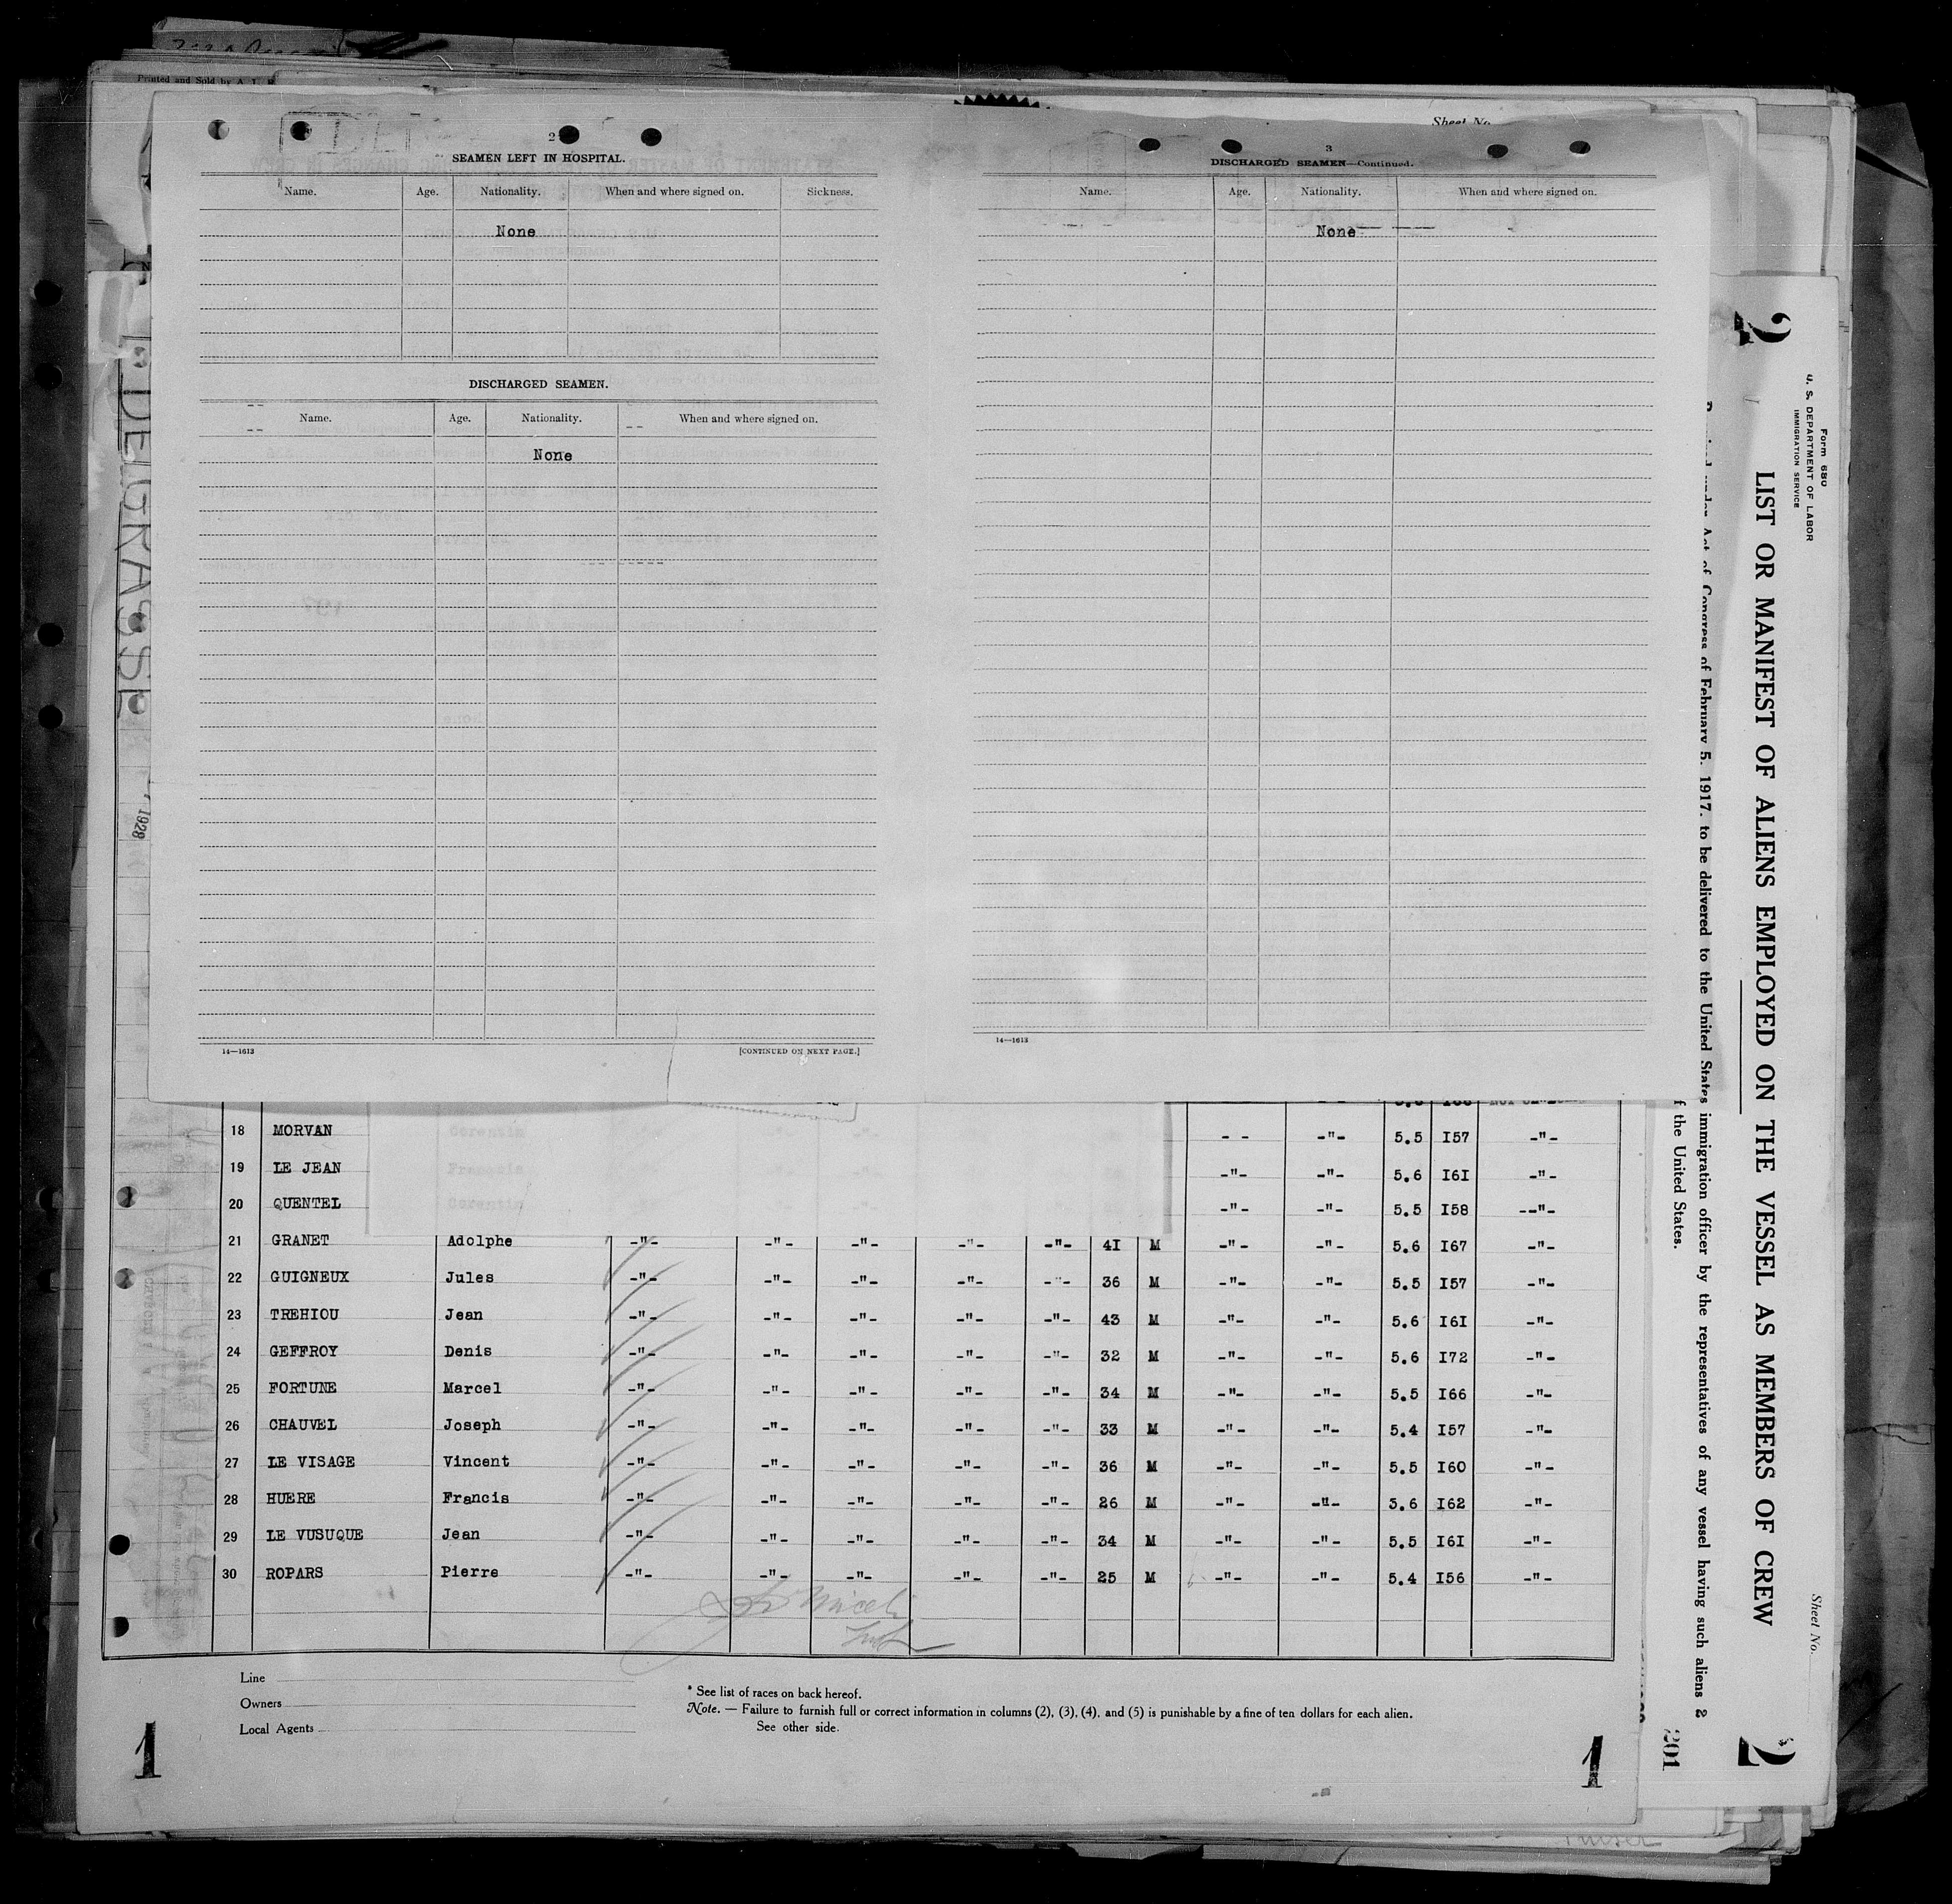 Printed and Sold by A. L.
Sheet No.
2
SEAMEN LEFT IN HOSPITAL.
Name. Age. Nationality. When and where signed on. Sickness.
None
DISCHARGED SEAMEN.
Name. Age. Nationality. When and where signed on.
None
14—1613 [CONTINUED ON NEXT PAGE.]
3
DISCHARGED SEAMEN—Continued.
Name. Age. Nationality. When and where signed on.
None
14—1613
DE GRASSE
1928
18 MORVAN Corentin - - -"- 5.5 I57 -"-
19 LE JEAN François -"- -"- 5.6 I6I -"-
20 QUENTEL Corentin -"- -"- 5.5 I58 --"-
21 GRANET Adolphe -"- -"- -"- -"- -"- 4I M -"- -"- 5.6 I67 -"-
22 GUIGNEUX Jules -"- -"- -"- -"- -"- 36 M -"- -"- 5.5 I57 -"-
23 TREHIOU Jean -"- -"- -"- -"- -"- 43 M -"- -"- 5.6 I6I -"-
24 GEFFROY Denis -"- -"- -"- -"- -"- 32 M -"- -"- 5.6 I72 -"-
25 FORTUNE Marcel -"- -"- -"- -"- -"- 34 M -"- -"- 5.5 I66 -"-
26 CHAUVEL Joseph -"- -"- -"- -"- -"- 33 M -"- -"- 5.4 I57 -"-
27 LE VISAGE Vincent -"- -"- -"- -"- -"- 36 M -"- -"- 5.5 I60 -"-
28 HUERE Francis -"- -"- -"- -"- -"- 26 M -"- -"- 5.6 I62 -"-
29 LE VUSUQUE Jean -"- -"- -"- -"- -"- 34 M -"- -"- 5.5 I6I -"-
30 ROPARS Pierre -"- -"- -"- -"- -"- 25 M -"- -"- 5.4 I56 -"-
Line
Owners
Local Agents
* See list of races on back hereof.
Note. — Failure to furnish full or correct information in columns (2), (3), (4), and (5) is punishable by a fine of ten dollars for each alien.
See other side.
1 1
2
Form 680
U. S. DEPARTMENT OF LABOR
IMMIGRATION SERVICE
LIST OR MANIFEST OF ALIENS EMPLOYED ON THE VESSEL AS MEMBERS OF CREW
Act of Congress of February 5, 1917, to be delivered to the United States immigration officer by the representatives of any vessel having such aliens
the United States.
Sheet No.
201
2